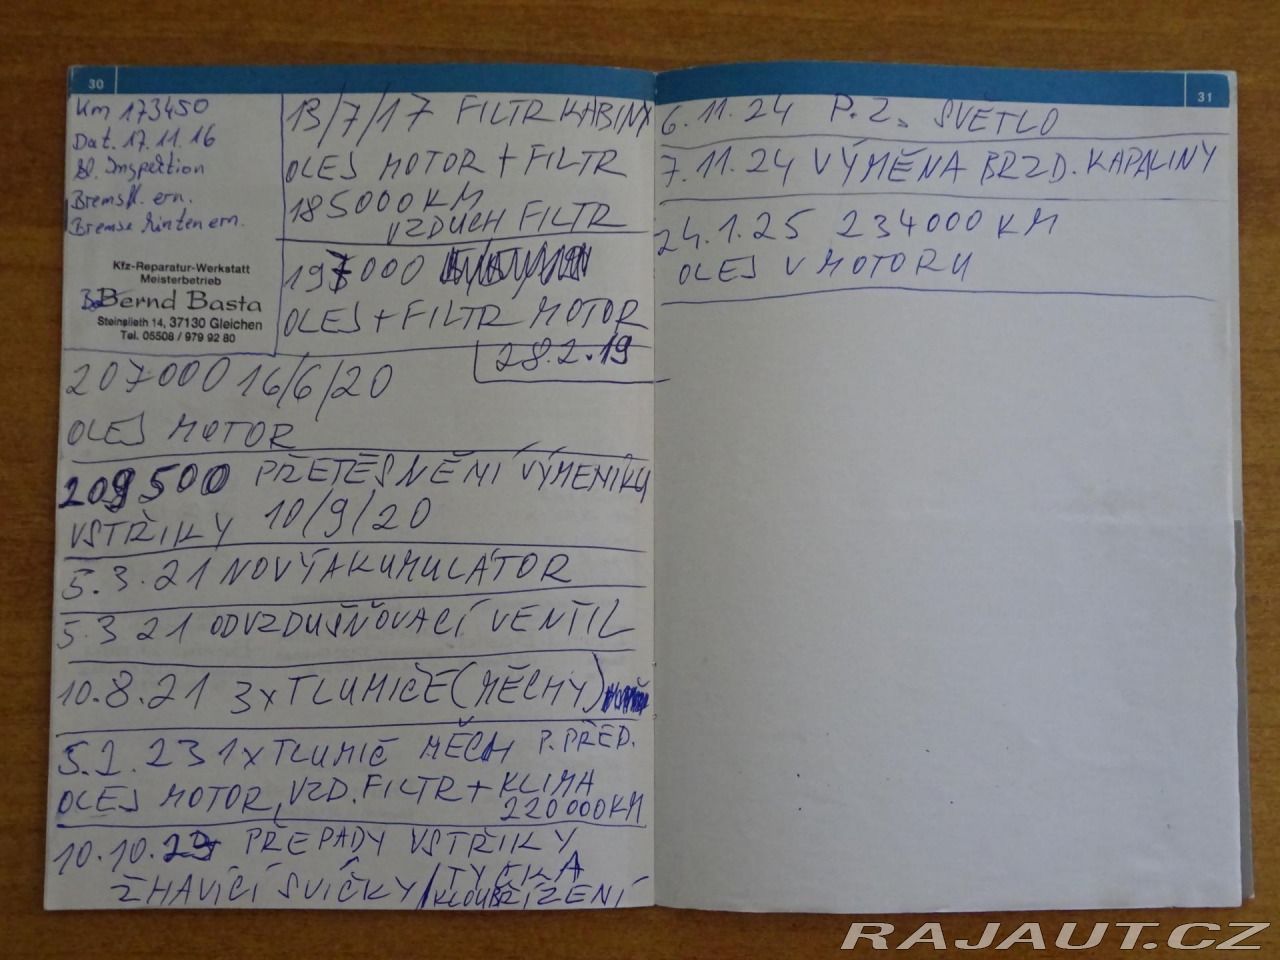 30
Km 173450
Dat. 17.11.16
Inspektion
Bremsfl. ern.
Bremse hinten ern.
Kfz-Reparatur-Werkstatt
Meisterbetrieb
Bernd Basta
Steinslieth 14, 37130 Gleichen
Tel. 05508 / 979 92 80
13/7/17 FILTR KABINY
OLEJ MOTOR + FILTR
185000 KM
VZDUCH FILTR
197000
OLEJ + FILTR MOTOR
28.2.19
207000 16/6/20
OLEJ MOTOR
209500 PŘETĚSNĚNÍ VÝMĚNÍKU
VSTŘIKY 10/9/20
5.3.21 NOVÝ AKUMULÁTOR
5.3 21 ODVZDUŠŇOVACÍ VENTIL
10.8.21 3x TLUMIČE (MĚCHY)
5.2.23 1x TLUMIČ MĚCH P. PŘED.
OLEJ MOTOR, VZD. FILTR + KLIMA
220000 KM
10.10.23 PŘEPADY VSTŘIKY
ŽHAVÍCÍ SVÍČKY / TYČKA
KLOUB ŘÍZENÍ
31
6.11.24 P. Z. SVĚTLO
7.11.24 VÝMĚNA BRZD. KAPALINY
24.1.25 234000 KM
OLEJ V MOTORU
RAJAUT.CZ